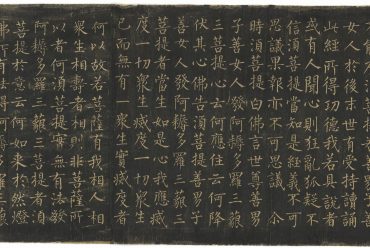 女人於後末世有受持讀誦
此經所得功德我若具說者
或有人聞心則狂亂狐疑不
信須菩提當知是經義不可
思議果報亦不可思議 尒
時須菩提白佛言世尊善男
子善女人發阿耨多羅三藐
三菩提心云何應住云何降
伏其心佛告須菩提善男子
善女人發阿耨多羅三藐三
菩提者當生如是心我應滅
度一切眾生滅度一切眾生
已而無有一眾生實滅度者
何以故若菩薩有我相人相
眾生相壽者相則非菩薩所
以者何須菩提實無有法發
阿耨多羅三藐三菩提者須
菩提於意云何如來於然燈
佛所有法得阿耨多羅三藐